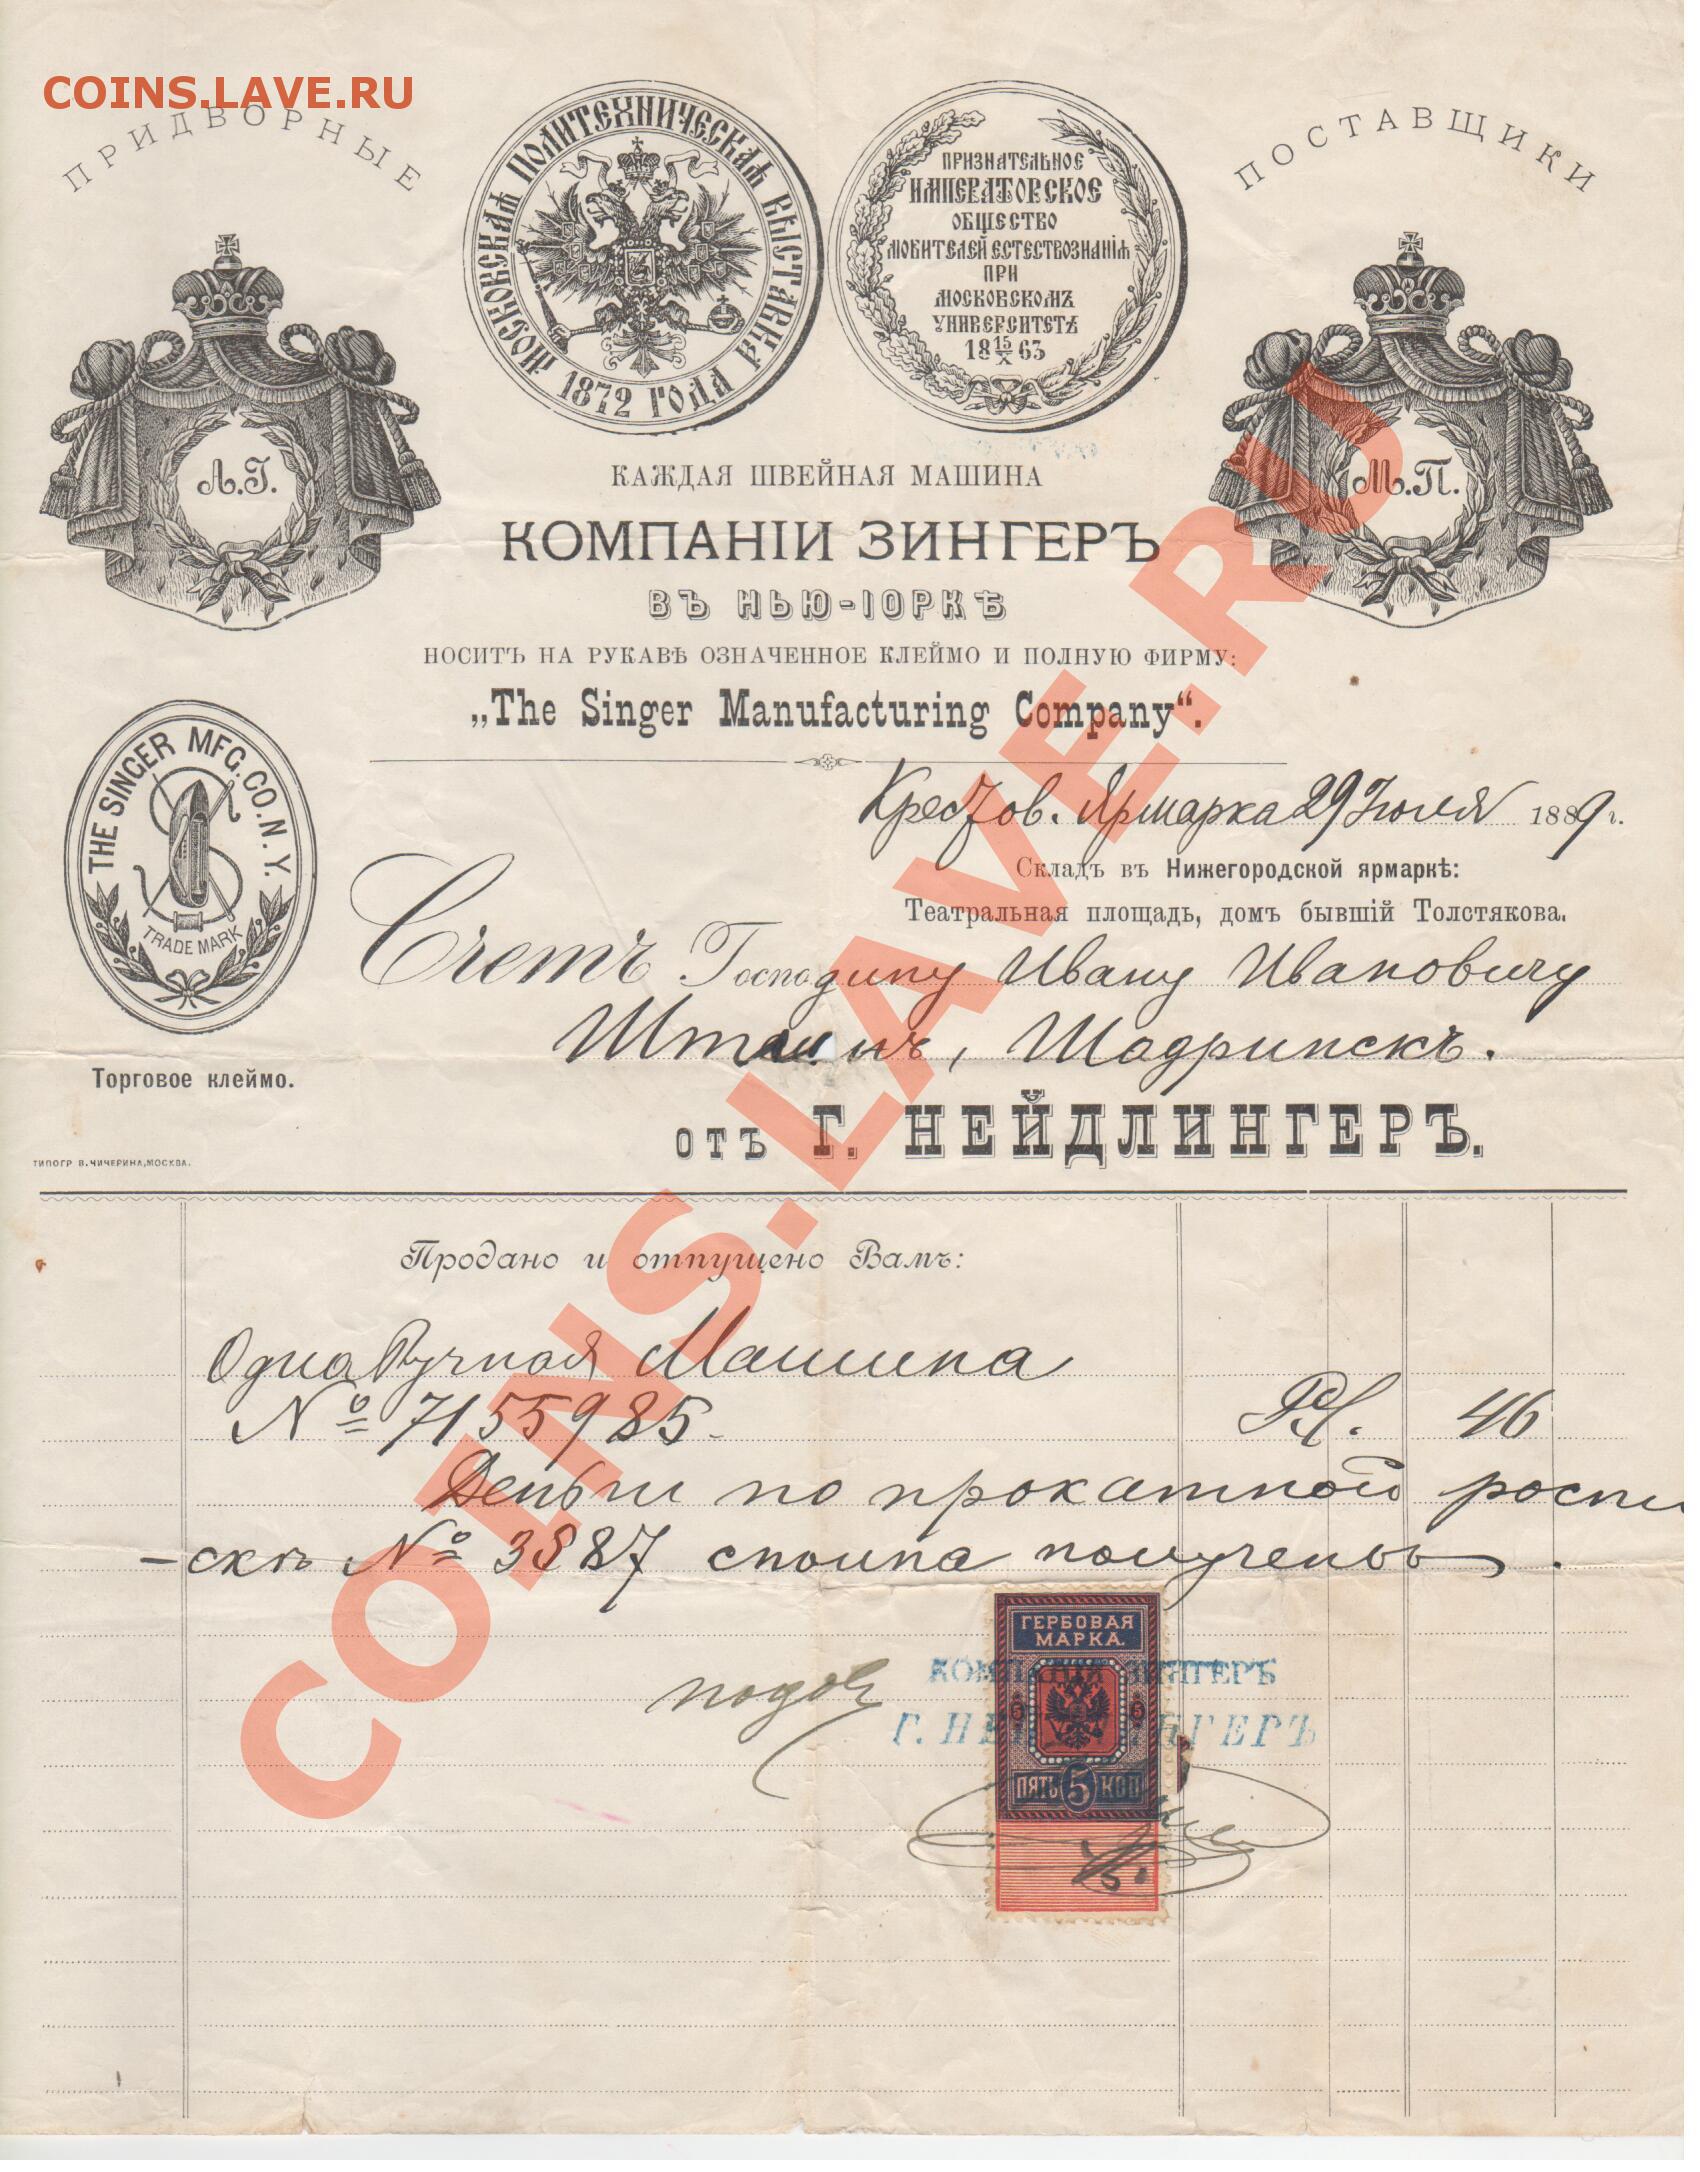 COINS.LAVE.RU
ПРИДВОРНЫЕ
ПОСТАВЩИКИ
МОСКОВСКАЯ ПОЛИТЕХНИЧЕСКАЯ ВЫСТАВКА
1872 ГОДА
ПРИЗНАТЕЛЬНОЕ
ИМПЕРАТОРСКОЕ
ОБЩЕСТВО
ЛЮБИТЕЛЕЙ ЕСТЕСТВОЗНАНІЯ
ПРИ
МОСКОВСКОМЪ
УНИВЕРСИТЕТѢ
18 15/X 63
А.Г.
М.П.
КАЖДАЯ ШВЕЙНАЯ МАШИНА
КОМПАНІИ ЗИНГЕРЪ
ВЪ НЬЮ-ІОРКѢ
НОСИТЪ НА РУКАВѢ ОЗНАЧЕННОЕ КЛЕЙМО И ПОЛНУЮ ФИРМУ:
„The Singer Manufacturing Company“.
THE SINGER MFG. CO. N.Y.
TRADE MARK
Торговое клеймо.
Крестов. Ярмарка 29 Іюля 1889 г.
Складъ въ Нижегородской ярмаркѣ:
Театральная площадь, домъ бывшій Толстякова.
Счетъ Господину Ивану Ивановичу
Шадринскъ.
отъ Г. НЕЙДЛИНГЕРЪ.
ТИПОГР В. ЧИЧЕРИНА, МОСКВА.
Продано и отпущено Вамъ:
Одна Ручная Машина
№ 7155985. Р. 46
Деньги по прокатной роспи
-скѣ № 3887 сполна получены.
ГЕРБОВАЯ
МАРКА.
КОМПАНІЯ ЗИНГЕРЪ
5 5
Г. НЕЙДЛИНГЕРЪ
ПЯТЬ 5 КОП
COINS.LAVE.RU